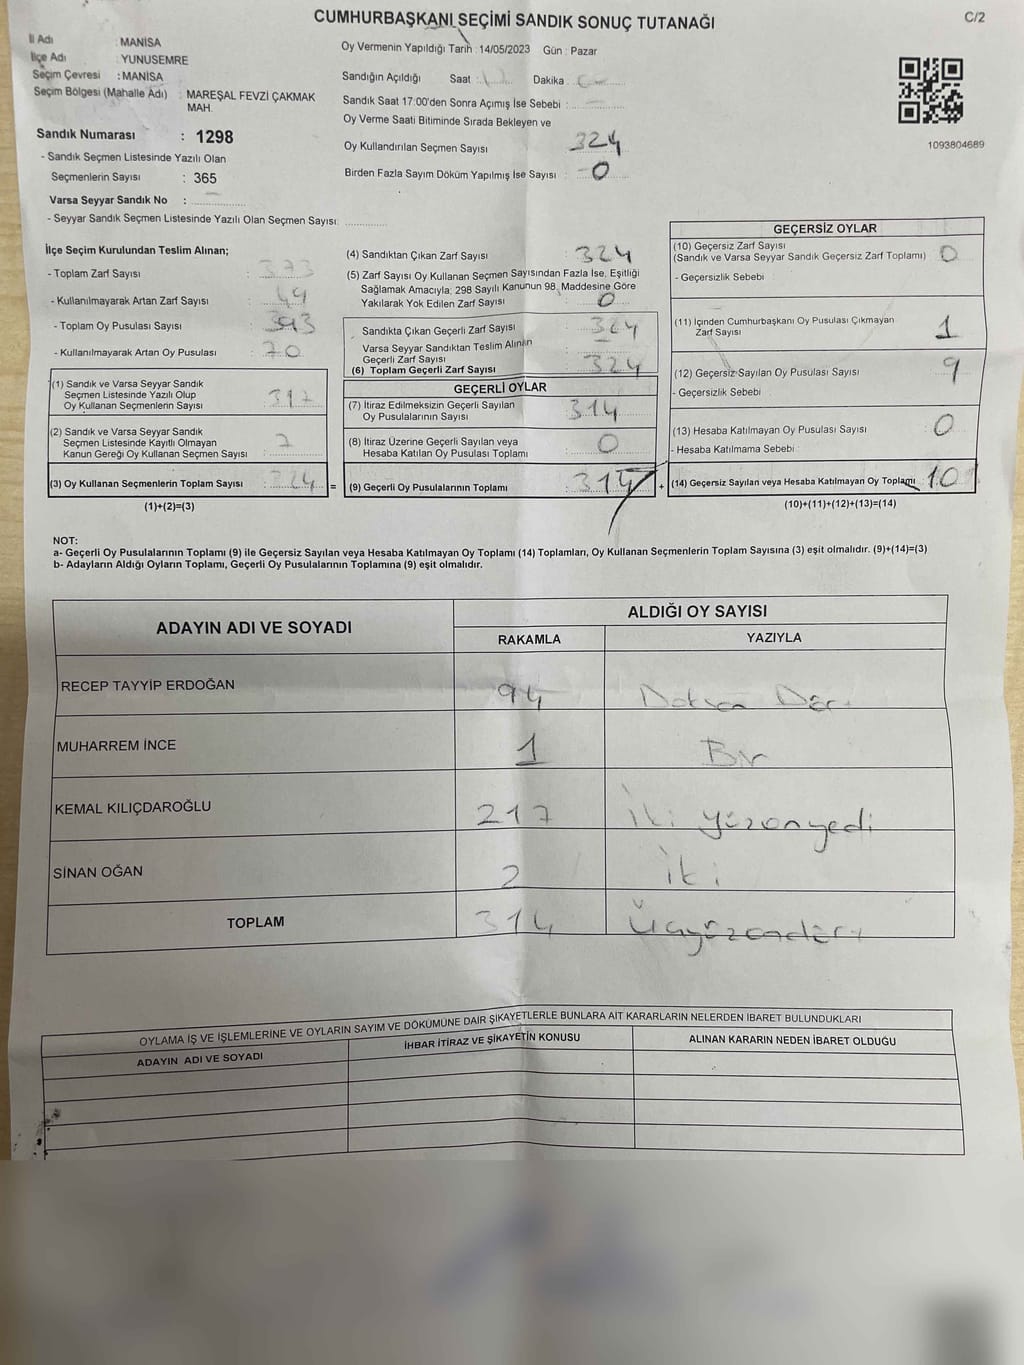 CUMHURBAŞKANI SEÇİMİ SANDIK SONUÇ TUTANAĞI
C/2
İl Adı : MANİSA
İlçe Adı : YUNUSEMRE
Seçim Çevresi : MANİSA
Seçim Bölgesi (Mahalle Adı) : MAREŞAL FEVZİ ÇAKMAK MAH.
Sandık Numarası : 1298
- Sandık Seçmen Listesinde Yazılı Olan
Seçmenlerin Sayısı : 365
Varsa Seyyar Sandık No :
- Seyyar Sandık Seçmen Listesinde Yazılı Olan Seçmen Sayısı:
Oy Vermenin Yapıldığı Tarih : 14/05/2023 Gün : Pazar
Sandığın Açıldığı Saat : Dakika :
Sandık Saat 17:00'den Sonra Açımış İse Sebebi :
Oy Verme Saati Bitiminde Sırada Bekleyen ve
Oy Kullandırılan Seçmen Sayısı 324
Birden Fazla Sayım Döküm Yapılmış İse Sayısı : 0
1093804689
İlçe Seçim Kurulundan Teslim Alınan;
- Toplam Zarf Sayısı : 373
- Kullanılmayarak Artan Zarf Sayısı : 49
- Toplam Oy Pusulası Sayısı : 393
- Kullanılmayarak Artan Oy Pusulası : 70
(1) Sandık ve Varsa Seyyar Sandık
Seçmen Listesinde Yazılı Olup
Oy Kullanan Seçmenlerin Sayısı : 317
(2) Sandık ve Varsa Seyyar Sandık
Seçmen Listesinde Kayıtlı Olmayan
Kanun Gereği Oy Kullanan Seçmen Sayısı : 7
(3) Oy Kullanan Seçmenlerin Toplam Sayısı : 324 =
(1)+(2)=(3)
(4) Sandıktan Çıkan Zarf Sayısı : 324
(5) Zarf Sayısı Oy Kullanan Seçmen Sayısından Fazla İse, Eşitliği
Sağlamak Amacıyla; 298 Sayılı Kanunun 98. Maddesine Göre
Yakılarak Yok Edilen Zarf Sayısı : 0
Sandıkta Çıkan Geçerli Zarf Sayısı : 324
Varsa Seyyar Sandıktan Teslim Alınan
Geçerli Zarf Sayısı :
(6) Toplam Geçerli Zarf Sayısı : 324
GEÇERLİ OYLAR
(7) İtiraz Edilmeksizin Geçerli Sayılan
Oy Pusulalarının Sayısı : 314
(8) İtiraz Üzerine Geçerli Sayılan veya
Hesaba Katılan Oy Pusulası Toplamı : 0
(9) Geçerli Oy Pusulalarının Toplamı : 314 +
GEÇERSİZ OYLAR
(10) Geçersiz Zarf Sayısı
(Sandık ve Varsa Seyyar Sandık Geçersiz Zarf Toplamı) : 0
- Geçersizlik Sebebi
(11) İçinden Cumhurbaşkanı Oy Pusulası Çıkmayan
Zarf Sayısı 1
(12) Geçersiz Sayılan Oy Pusulası Sayısı : 9
- Geçersizlik Sebebi
(13) Hesaba Katılmayan Oy Pusulası Sayısı : 0
- Hesaba Katılmama Sebebi
(14) Geçersiz Sayılan veya Hesaba Katılmayan Oy Toplamı : 10
(10)+(11)+(12)+(13)=(14)
NOT:
a- Geçerli Oy Pusulalarının Toplamı (9) ile Geçersiz Sayılan veya Hesaba Katılmayan Oy Toplamı (14) Toplamları, Oy Kullanan Seçmenlerin Toplam Sayısına (3) eşit olmalıdır. (9)+(14)=(3)
b- Adayların Aldığı Oyların Toplamı, Geçerli Oy Pusulalarının Toplamına (9) eşit olmalıdır.
ADAYIN ADI VE SOYADI
ALDIĞI OY SAYISI
RAKAMLA YAZIYLA
RECEP TAYYİP ERDOĞAN 94 Doksan Dört
MUHARREM İNCE 1 Bir
KEMAL KILIÇDAROĞLU 217 İki yüzonyedi
SİNAN OĞAN 2 İki
TOPLAM 314 Üçyüzondört
OYLAMA İŞ VE İŞLEMLERİNE VE OYLARIN SAYIM VE DÖKÜMÜNE DAİR ŞİKAYETLERLE BUNLARA AİT KARARLARIN NELERDEN İBARET BULUNDUKLARI
ADAYIN ADI VE SOYADI İHBAR İTİRAZ VE ŞİKAYETİN KONUSU ALINAN KARARIN NEDEN İBARET OLDUĞU